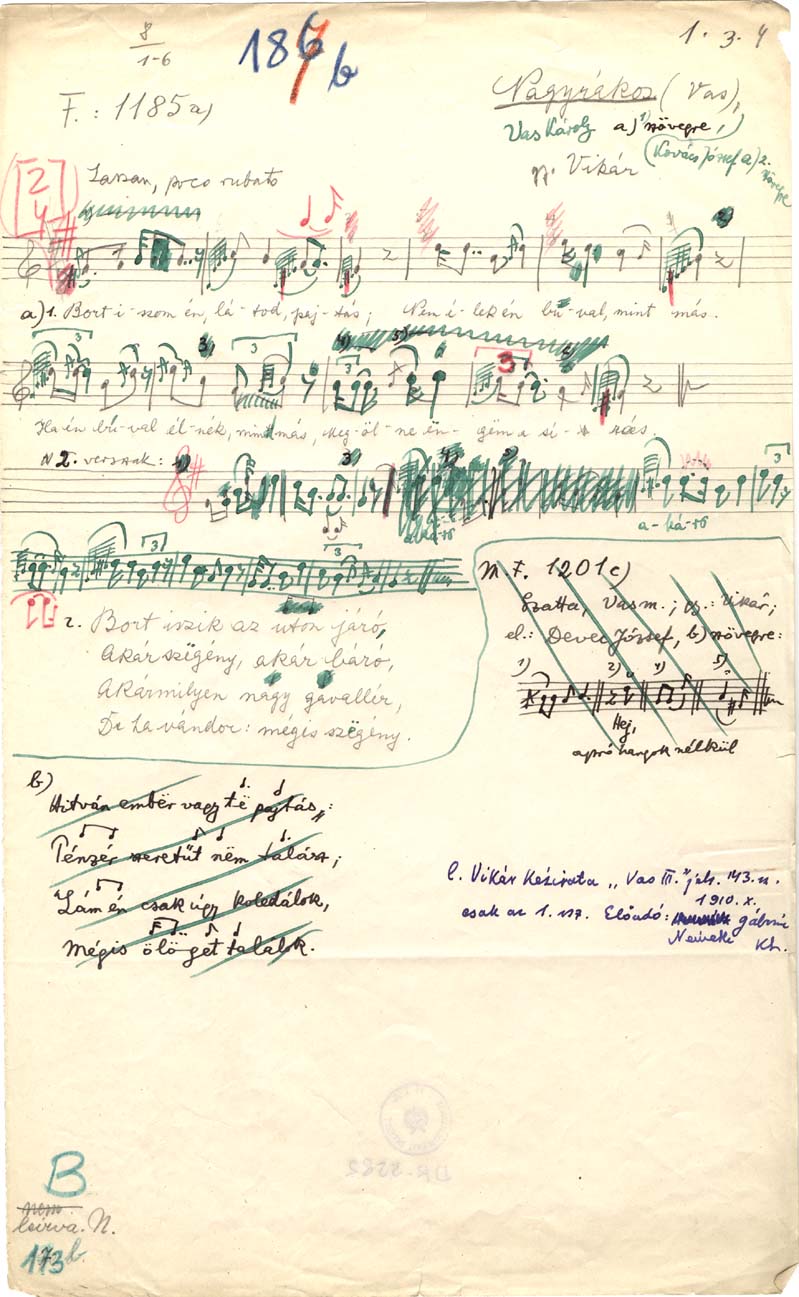 8
1-6
186
7
b
1. 3. 4
F.: 1185 a)
Nagyrákos (Vas),
Vas Károly a) 1) szövegre,
(Kovács József a) 2. szövegre
Vikár
2
4
Lassan, poco rubato
3
a) 1. Bort i-szom én, lá-tod, paj-tás; Nem é-lek én bú-val, mint más.
3 3) 3 4) 5) 3 3
Ha én bú-val él-nék, mint más, Meg-öl-ne ën-gëm a sí-rás.
2. versszak:
3) 3
akár
a-ká-ró
3 3
2. Bort iszik az uton járó,
Akár szëgény, akár báró,
Akármilyen nagy gavallér,
De ha vándor: mégis szëgény.
M. F. 1201 c)
Szatta, Vas m.; gy.: Vikár;
el.: Devecz József, b) szövegre:
1) 2) 4) 5)
Hej,
apró hangok nélkül
b)
Hitván embër vagy të pajtás,:
Pénzér szeretűt nëm találsz;
Lám én csak úgy koledálok,
Mégis ölöget találok.
l. Vikár kézirata „Vas III." jelz. 143. sz.
1910. X.
csak az 1. vsz. Előadó: Gábriné
Kh.
DR-5585
B
nem
leirva. N.
173 b